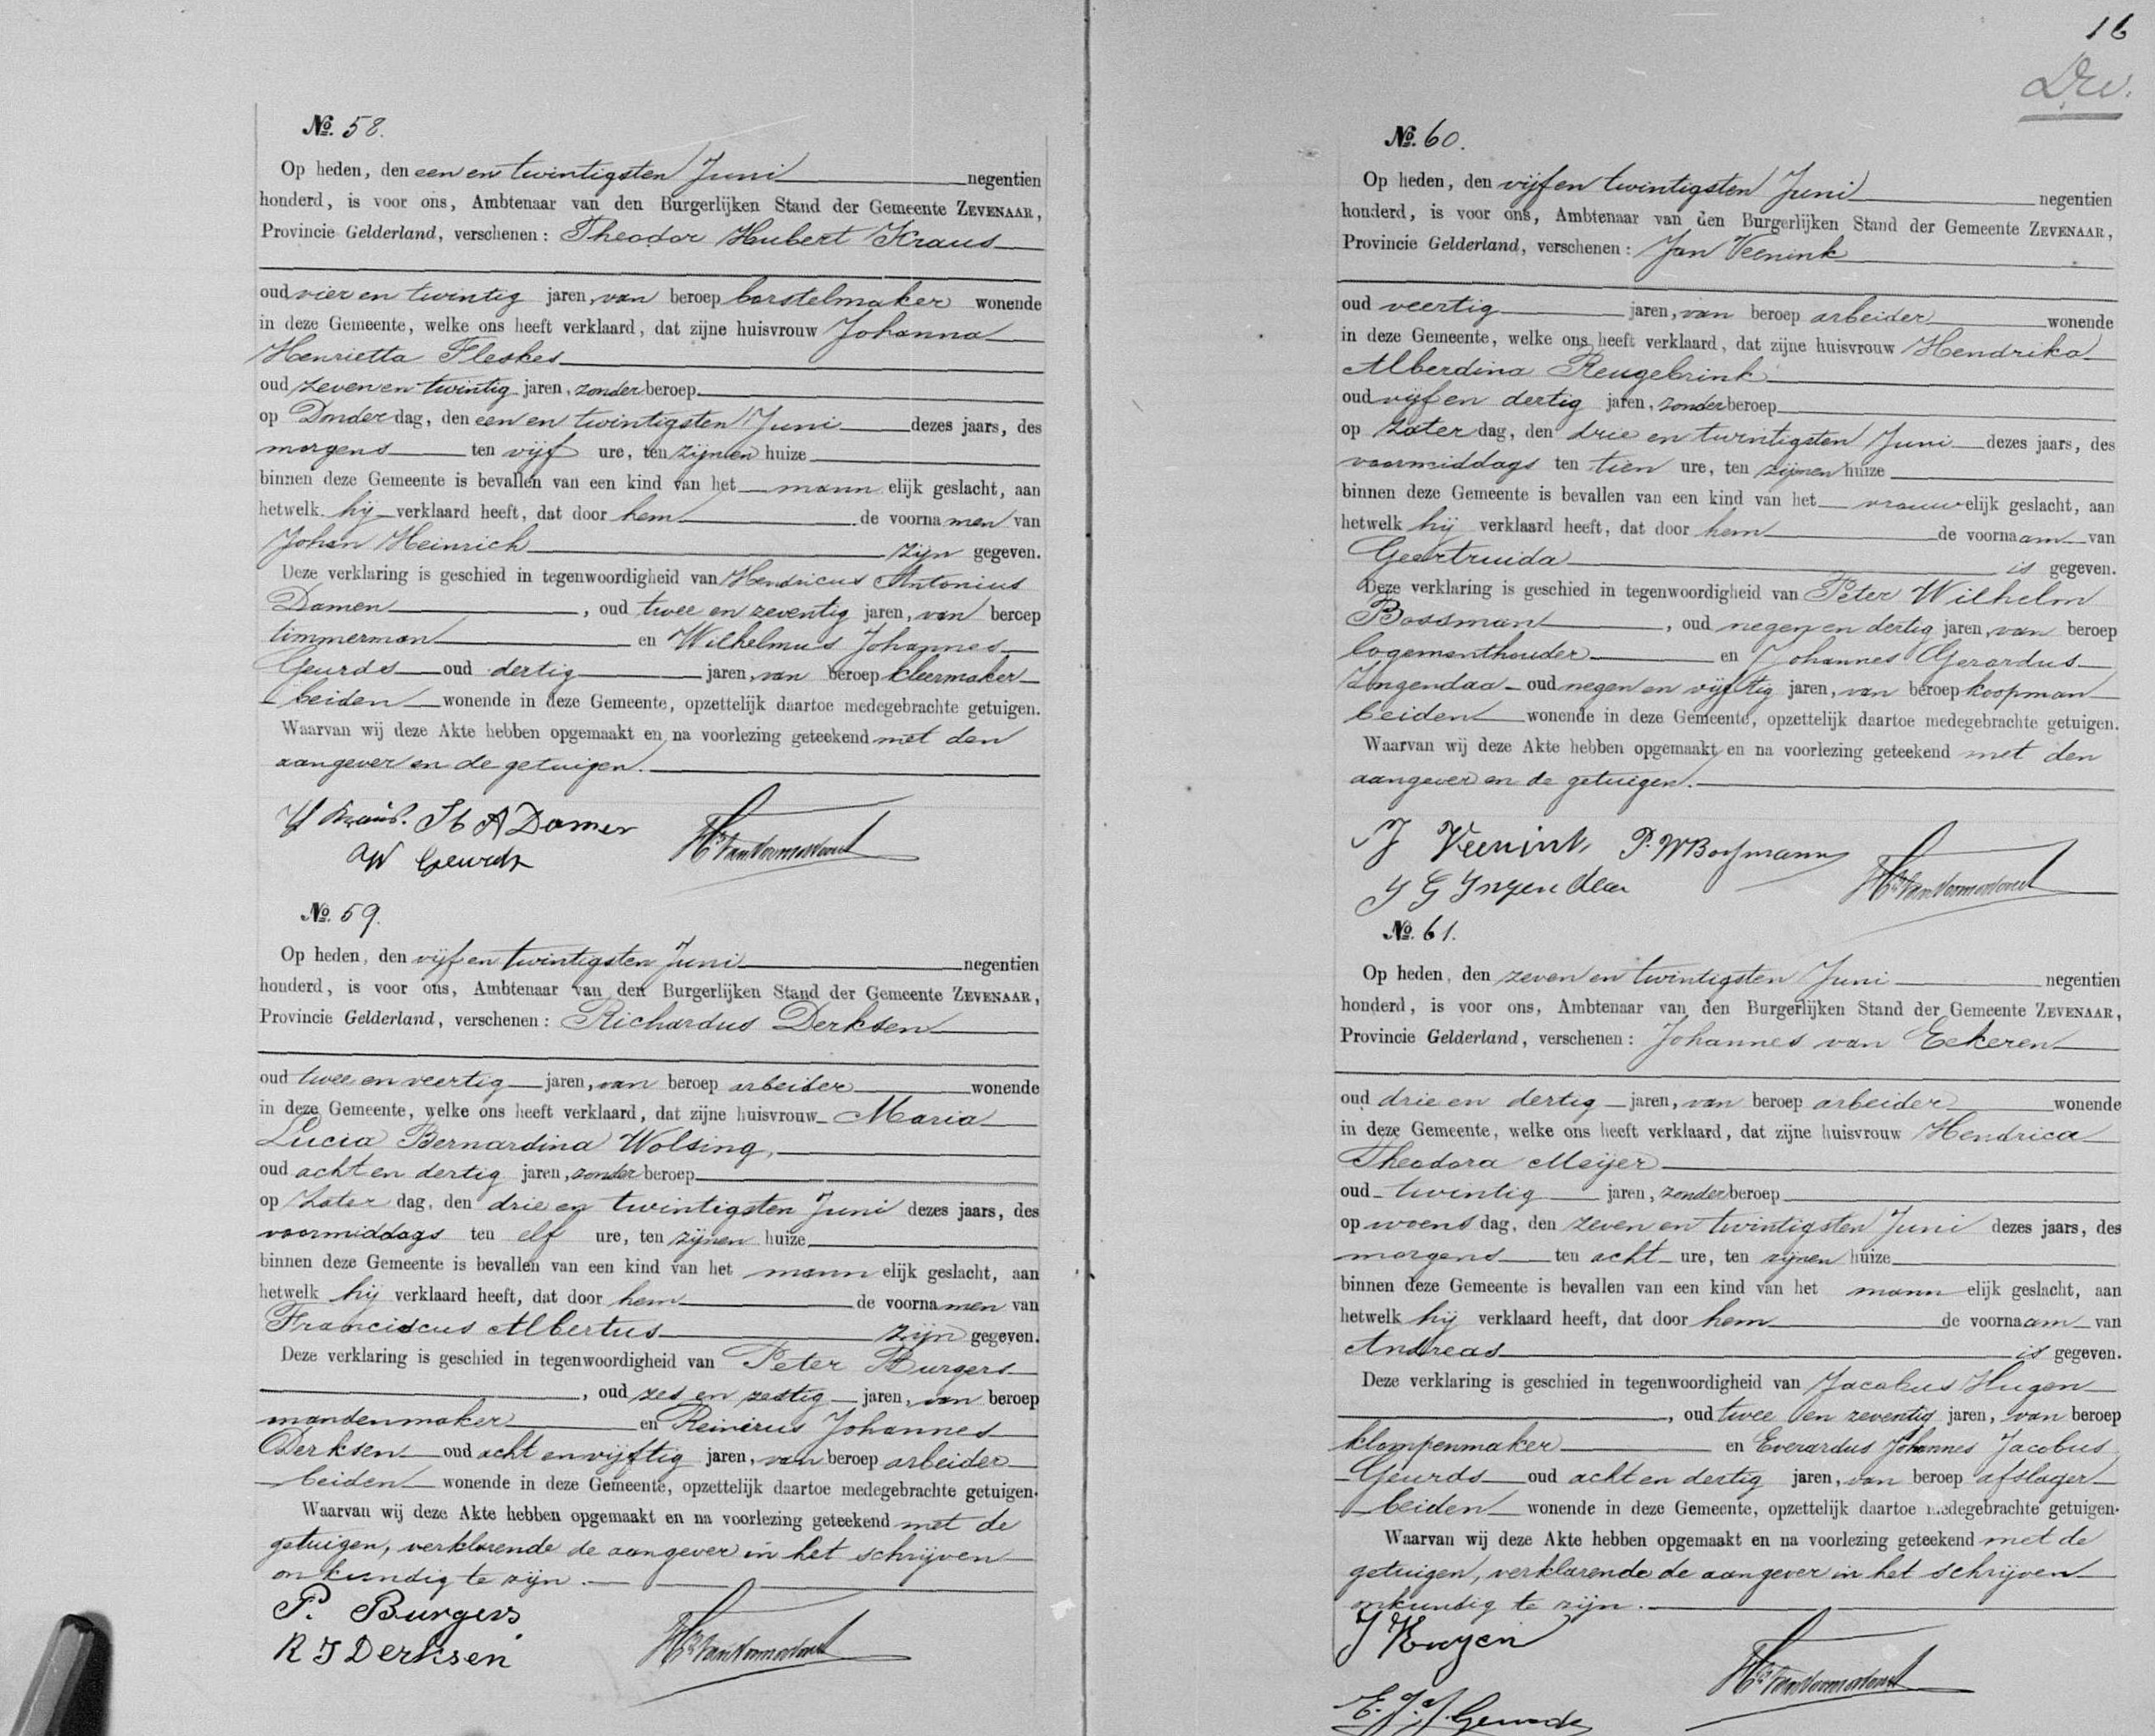 No. 58.
Op heden, den een en twintigsten Juni negentien
honderd, is voor ons, Ambtenaar van den Burgerlijken Stand der Gemeente ZEVENAAR,
Provincie Gelderland, verschenen: Theodor Hubert Kraus
oud vier en twintig jaren, van beroep borstelmaker wonende
in deze Gemeente, welke ons heeft verklaard, dat zijne huisvrouw Johanna
Henrietta Fleskes
oud zeven en twintig jaren, zonder beroep
op Donderdag, den een en twintigsten Juni dezes jaars, des
morgens ten vijf ure, ten zijnen huize
binnen deze Gemeente is bevallen van een kind van het mannelijk geslacht, aan
hetwelk hij verklaard heeft, dat door hem de voornamen van
Johan Heinrich zijn gegeven.
Deze verklaring is geschied in tegenwoordigheid van Hendricus Antonius
Damen, oud twee en zeventig jaren, van beroep
timmerman en Wilhelmus Johannes
Geurds oud dertig jaren, van beroep kleermaker
beiden wonende in deze Gemeente, opzettelijk daartoe medegebrachte getuigen.
Waarvan wij deze Akte hebben opgemaakt en na voorlezing geteekend met den
aangever en de getuigen.
H Kraus. H A Damen
W Geurds
No. 59.
Op heden, den vijf en twintigsten Juni negentien
honderd, is voor ons, Ambtenaar van den Burgerlijken Stand der Gemeente ZEVENAAR,
Provincie Gelderland, verschenen: Richardus Derksen
oud twee en veertig jaren, van beroep arbeider wonende
in deze Gemeente, welke ons heeft verklaard, dat zijne huisvrouw Maria
Lucia Bernardina Wolsing,
oud acht en dertig jaren, zonder beroep
op Zaterdag, den drie en twintigsten Juni dezes jaars, des
voormiddags ten elf ure, ten zijnen huize
binnen deze Gemeente is bevallen van een kind van het mannelijk geslacht, aan
hetwelk hij verklaard heeft, dat door hem de voornamen van
Franciscus Albertus zijn gegeven.
Deze verklaring is geschied in tegenwoordigheid van Peter Burgers
, oud zes en zestig jaren, van beroep
mandenmaker en Reinirus Johannes
Derksen oud acht en vijftig jaren, van beroep arbeider
beiden wonende in deze Gemeente, opzettelijk daartoe medegebrachte getuigen.
Waarvan wij deze Akte hebben opgemaakt en na voorlezing geteekend met de
getuigen, verklarende de aangever in het schrijven
onkundig te zijn.
P. Burgers
R J Derksen
16
No. 60.
Op heden, den vijf en twintigsten Juni negentien
honderd, is voor ons, Ambtenaar van den Burgerlijken Stand der Gemeente ZEVENAAR,
Provincie Gelderland, verschenen: Jan Veenink
oud veertig jaren, van beroep arbeider wonende
in deze Gemeente, welke ons heeft verklaard, dat zijne huisvrouw Hendrika
Alberdina Reugebrink
oud vijf en dertig jaren, zonder beroep
op Zaterdag, den drie en twintigsten Juni dezes jaars, des
voormiddags ten tien ure, ten zijnen huize
binnen deze Gemeente is bevallen van een kind van het vrouwelijk geslacht, aan
hetwelk hij verklaard heeft, dat door hem de voornaam van
Geertruida is gegeven.
Deze verklaring is geschied in tegenwoordigheid van Peter Wilhelm
Bossman, oud negen en dertig jaren, van beroep
logementhouder en Johannes Gerardus
Ingendaa oud negen en vijftig jaren, van beroep koopman
beiden wonende in deze Gemeente, opzettelijk daartoe medegebrachte getuigen.
Waarvan wij deze Akte hebben opgemaakt en na voorlezing geteekend met den
aangever en de getuigen.
J Veenink P. W Bossmann
J G Ingendaa
No. 61.
Op heden, den zeven en twintigsten Juni negentien
honderd, is voor ons, Ambtenaar van den Burgerlijken Stand der Gemeente ZEVENAAR,
Provincie Gelderland, verschenen: Johannes van Eekeren
oud drie en dertig jaren, van beroep arbeider wonende
in deze Gemeente, welke ons heeft verklaard, dat zijne huisvrouw Hendrica
Theodora Meijer
oud twintig jaren, zonder beroep
op woensdag, den zeven en twintigsten Juni dezes jaars, des
morgens ten acht ure, ten zijnen huize
binnen deze Gemeente is bevallen van een kind van het mannelijk geslacht, aan
hetwelk hij verklaard heeft, dat door hem de voornaam van
Andreas is gegeven.
Deze verklaring is geschied in tegenwoordigheid van Jacobus Hugen
, oud twee en zeventig jaren, van beroep
klompenmaker en Everardus Johannes Jacobus
Geurds oud acht en dertig jaren, van beroep afslager
beiden wonende in deze Gemeente, opzettelijk daartoe medegebrachte getuigen.
Waarvan wij deze Akte hebben opgemaakt en na voorlezing geteekend met de
getuigen, verklarende de aangever in het schrijven
onkundig te zijn.
E. J. J. Geurds